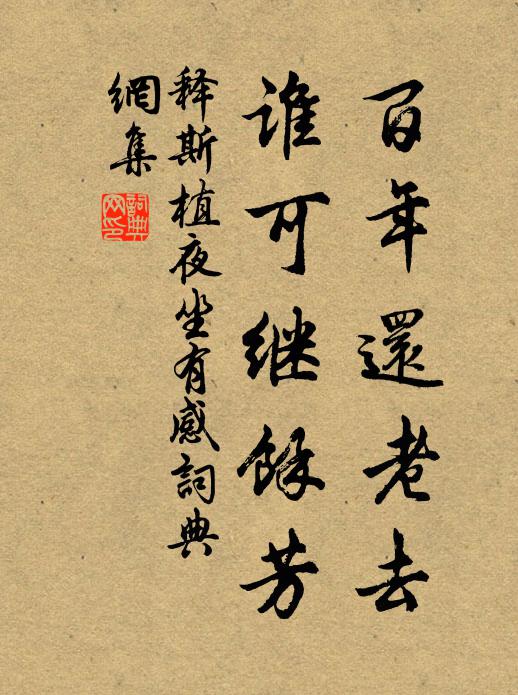 百年還老去
谁可继餘芳
释斯植夜坐有感詞典
網集
詞典
网印